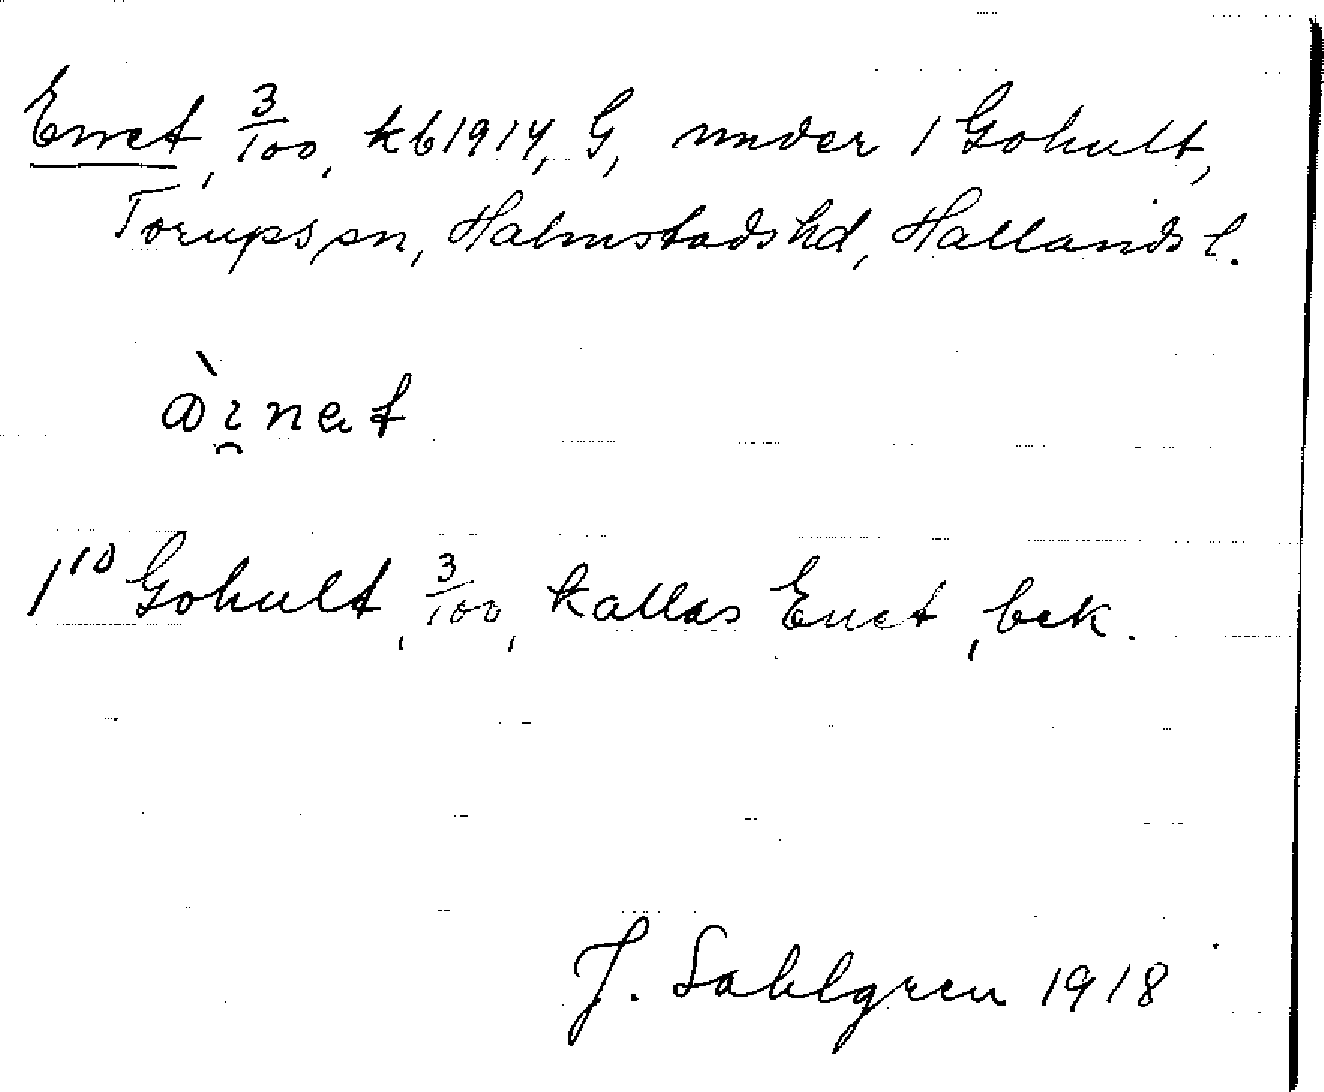 Enet, 3/100, kb 1914, G, under 1 Gohult,
Torups sn, Halmstads hd, Hallands l.
1¹⁰ Gohult, 3/100, kallas Enet, bek.
J. Sahlgren 1918